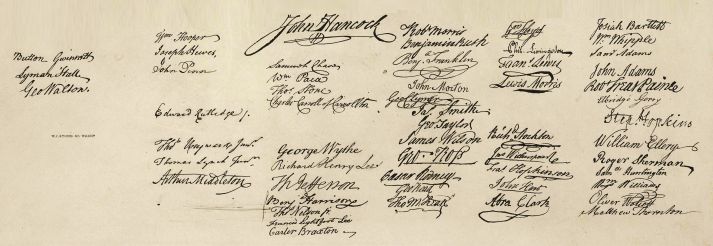 Button Gwinnett
Lyman Hall
Geo Walton.
Wm Hooper
Joseph Hewes,
John Penn
Edward Rutledge /.
Thos Heyward Junr.
Thomas Lynch Junr.
Arthur Middleton
John Hancock
Samuel Chase
Wm Paca
Thos Stone
Charles Carroll of Carrollton
George Wythe
Richard Henry Lee
Th Jefferson
Benj Harrison
Thos Nelson jr
Francis Lightfoot Lee
Carter Braxton
Robt Morris
Benjamin Rush
Benj. Franklin
John Morton
Geo Clymer
Jas. Smith
Geo. Taylor
James Wilson
Geo. Ross
Caesar Rodney
Geo Read
Tho M:Kean
Wm Floyd
Phil. Livingston
Frans. Lewis
Lewis Morris
Richd. Stockton
Jno Witherspoon
Fras. Hopkinson
John Hart
Abra Clark
Josiah Bartlett
Wm Whipple
Saml Adams
John Adams
Robt Treat Paine
Elbridge Gerry
Step Hopkins
William Ellery
Roger Sherman
Saml Huntington
Wm Williams
Oliver Wolcott
Matthew Thornton